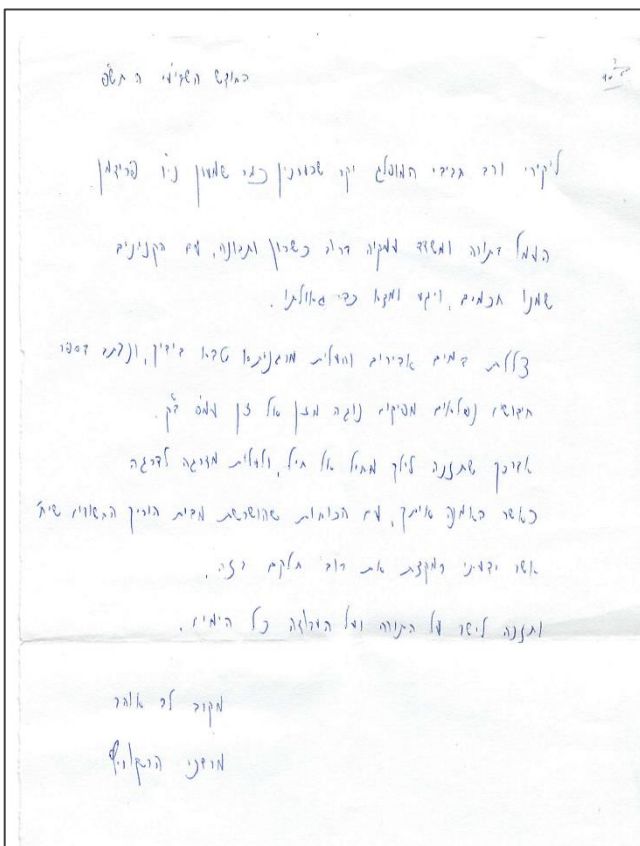 בס"ד
החודש השביעי ה תש"פ
ליקירי ורב חביבי המופלג יקר שבערכין כמר שמעון נ"ו פרידמן
העמל בתורה ומשדד עמקיה ברוב כשרון ותבונה, עם הקנינים
שמנו חכמים, ויגע ומצא כדי גאולתו.
צללת במים אדירים והעלית מרגניתא טבא בידיך, ונכתב בספר
חידושים נפלאים מפיקים נוגה מזן אל זן עמ"ס ב"ק.
אברכך שתזכה לילך מחיל אל חיל, ולעלות מדרגה לדרגה
כאשר האמנה איתך, עם הכוחות שהושרשת מבית הוריך החשובים שיח'
אשר ידעתי ממקצת את רוב חלקם בזה.
ותזכה לישב על התורה ועל העבודה כל הימים.
מקרב לב אוהב
מרדכי